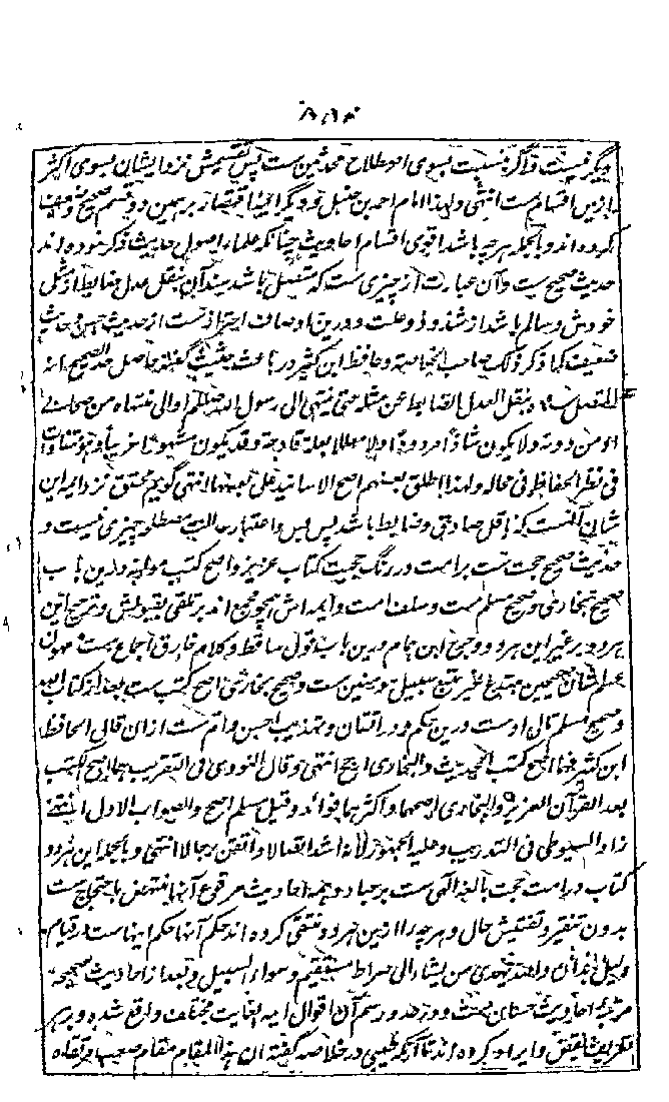 دیگر نیست و اگر نسبت بسوی اصطلاح محدثین ست پس تقسیمش نزد ایشان بسوی اکثر
ازین اقسام ست انتهی ولهذا امام احمد بن حنبل و دیگر برهمین دو قسم صحیح و ضعیف
کرده اند و بالجمله هر چه باشد اقوی اقسام احادیث چنانکه علماء اصول حدیث ذکر نموده اند
حدیث صحیح ست و آن عبارت از چیزی ست که متصل باشد سند آن بنقل عدل ضابط از مثل
خودش و سالم باشد از شذوذ و علت و درین اوصاف احتراز ست از حدیث حسن و حدیث
ضعیف کما ذکر ذلک صاحب الخلاصة و حافظ ابن کثیر در باعث حثیث گفته حاصل حد الصحیح انه
المتصل سنده بنقل العدل الضابط عن مثله حتی ینتهی الی رسول الله صلعم او الی منتهاه من صحابی
او من دونه ولا یکون شاذا مردودا ولا معللا بعلة قادحة وقد یکون مشهورا غریبا وهو متفاوت
فی نظر الحفاظ فی محاله ولهذا اطلق بعضهم اصح الاسانید علی بعضها انتهی گویم محقق نزد ایراین
شان آنست که ناقل صادق و ضابط باشد پس بس و اعتبار عدالت مصطلحه چیزی نیست و
حدیث صحیح حجت ست بر امت در رنگ حجیت کتاب عزیز و اصح کتب مولفه درین باب
صحیح بخاری و صحیح مسلم ست و سلف امت و ایمه اش همچو مجمع اند بر تلقی بقبولش و ترجیح این
هر دو بر غیر این هر دو و ترجیح ابن همام درین باب قول ساقط و کلام خارق اجماع ست
علم شان صحیحین متبع غیر سبیل مومنین ست و صحیح بخاری اصح کتب ست بعد از کتاب الله
و صحیح مسلم تالی اوست درین حکم و در اتقان و تهذیب احسن و اتم ست ازان قال الحافظ
ابن کثیر هما اصح کتب الحدیث والبخاری ارجح انتهی وقال النووی فی التقریب هما اصح الکتب
بعد القرآن العزیز والبخاری اصحهما و اکثرهما فوائد وقیل مسلم اصح والصواب الاول انتهی
زاد السیوطی فی التدریب وعلیه الجمهور لانه اشد اتصالا واتقن رجالا انتهی و بالجمله این هر دو
کتاب در امت حجت بالغه الهی ست بر عباد و همه احادیث مرفوع آنها منتهض باحتجاج ست
بدون تنقیر و تفتیش حال و هر چه را ازین هر دو منتقی کرده اند حکم آنها حکم اینهاست در قیام
دلیل بدان والله یهدی من یشاء الی صراط مستقیم وسواء السبیل و بعد از احادیث صحیحه
مرتبه احادیث حسان ست و در حد و رسم آن اقوال ایمه بغایت مختلف واقع شده و بر هر
تعریف نقض و ایراد کرده اند تا آنکه طیبی در خلاصه گفته ان هذا المقام مقام صعب مرتقاه